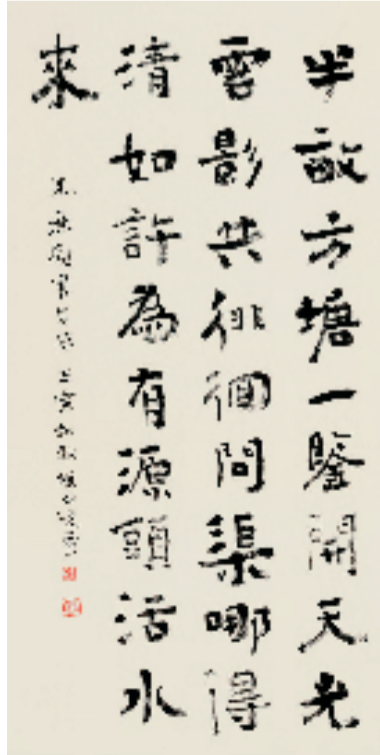 半畝方塘一鑒開天光
雲影共徘徊問渠哪得
清如許為有源頭活水
來